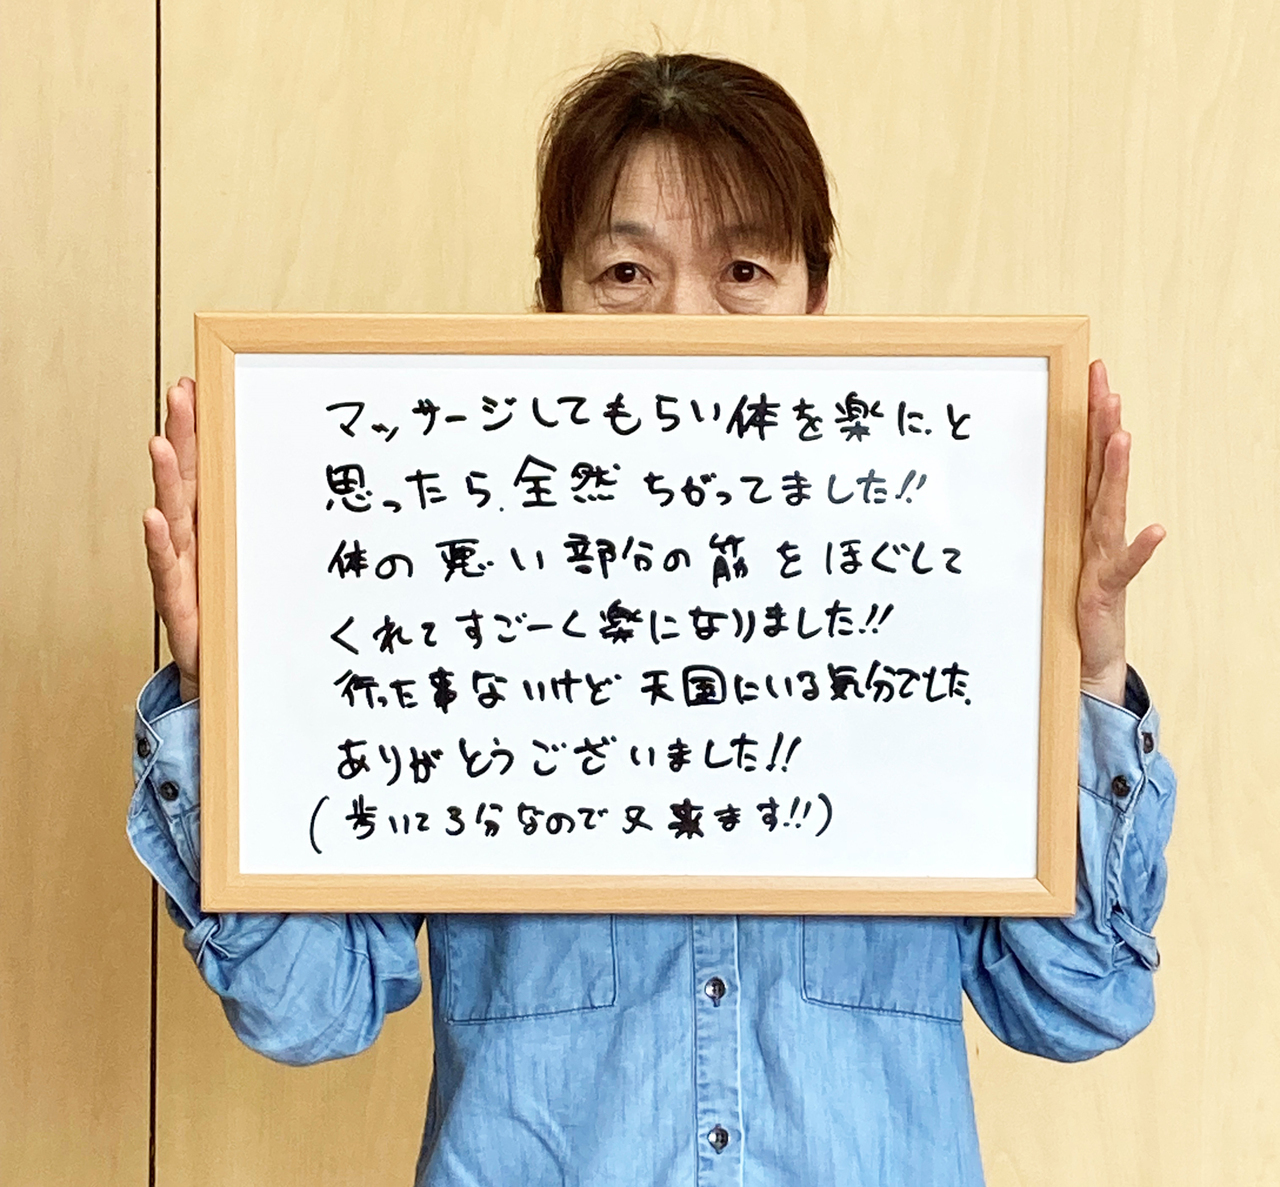 マッサージしてもらい体を楽に.と
思ったら.全然ちがってました!!
体の悪い部分の筋をほぐして
くれてすごーく楽になりました!!
行った事ないけど天国にいる気分でした.
ありがとうございました!!
(歩いて3分なので又来ます!!)